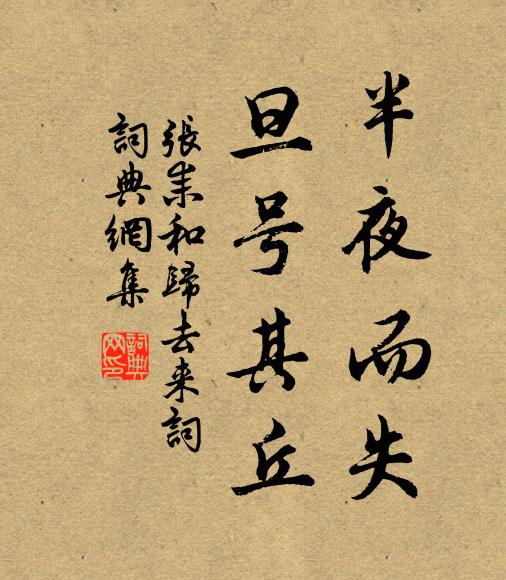 半夜而失
旦号其丘
張耒和歸去来詞
詞典網集
詞典
网印